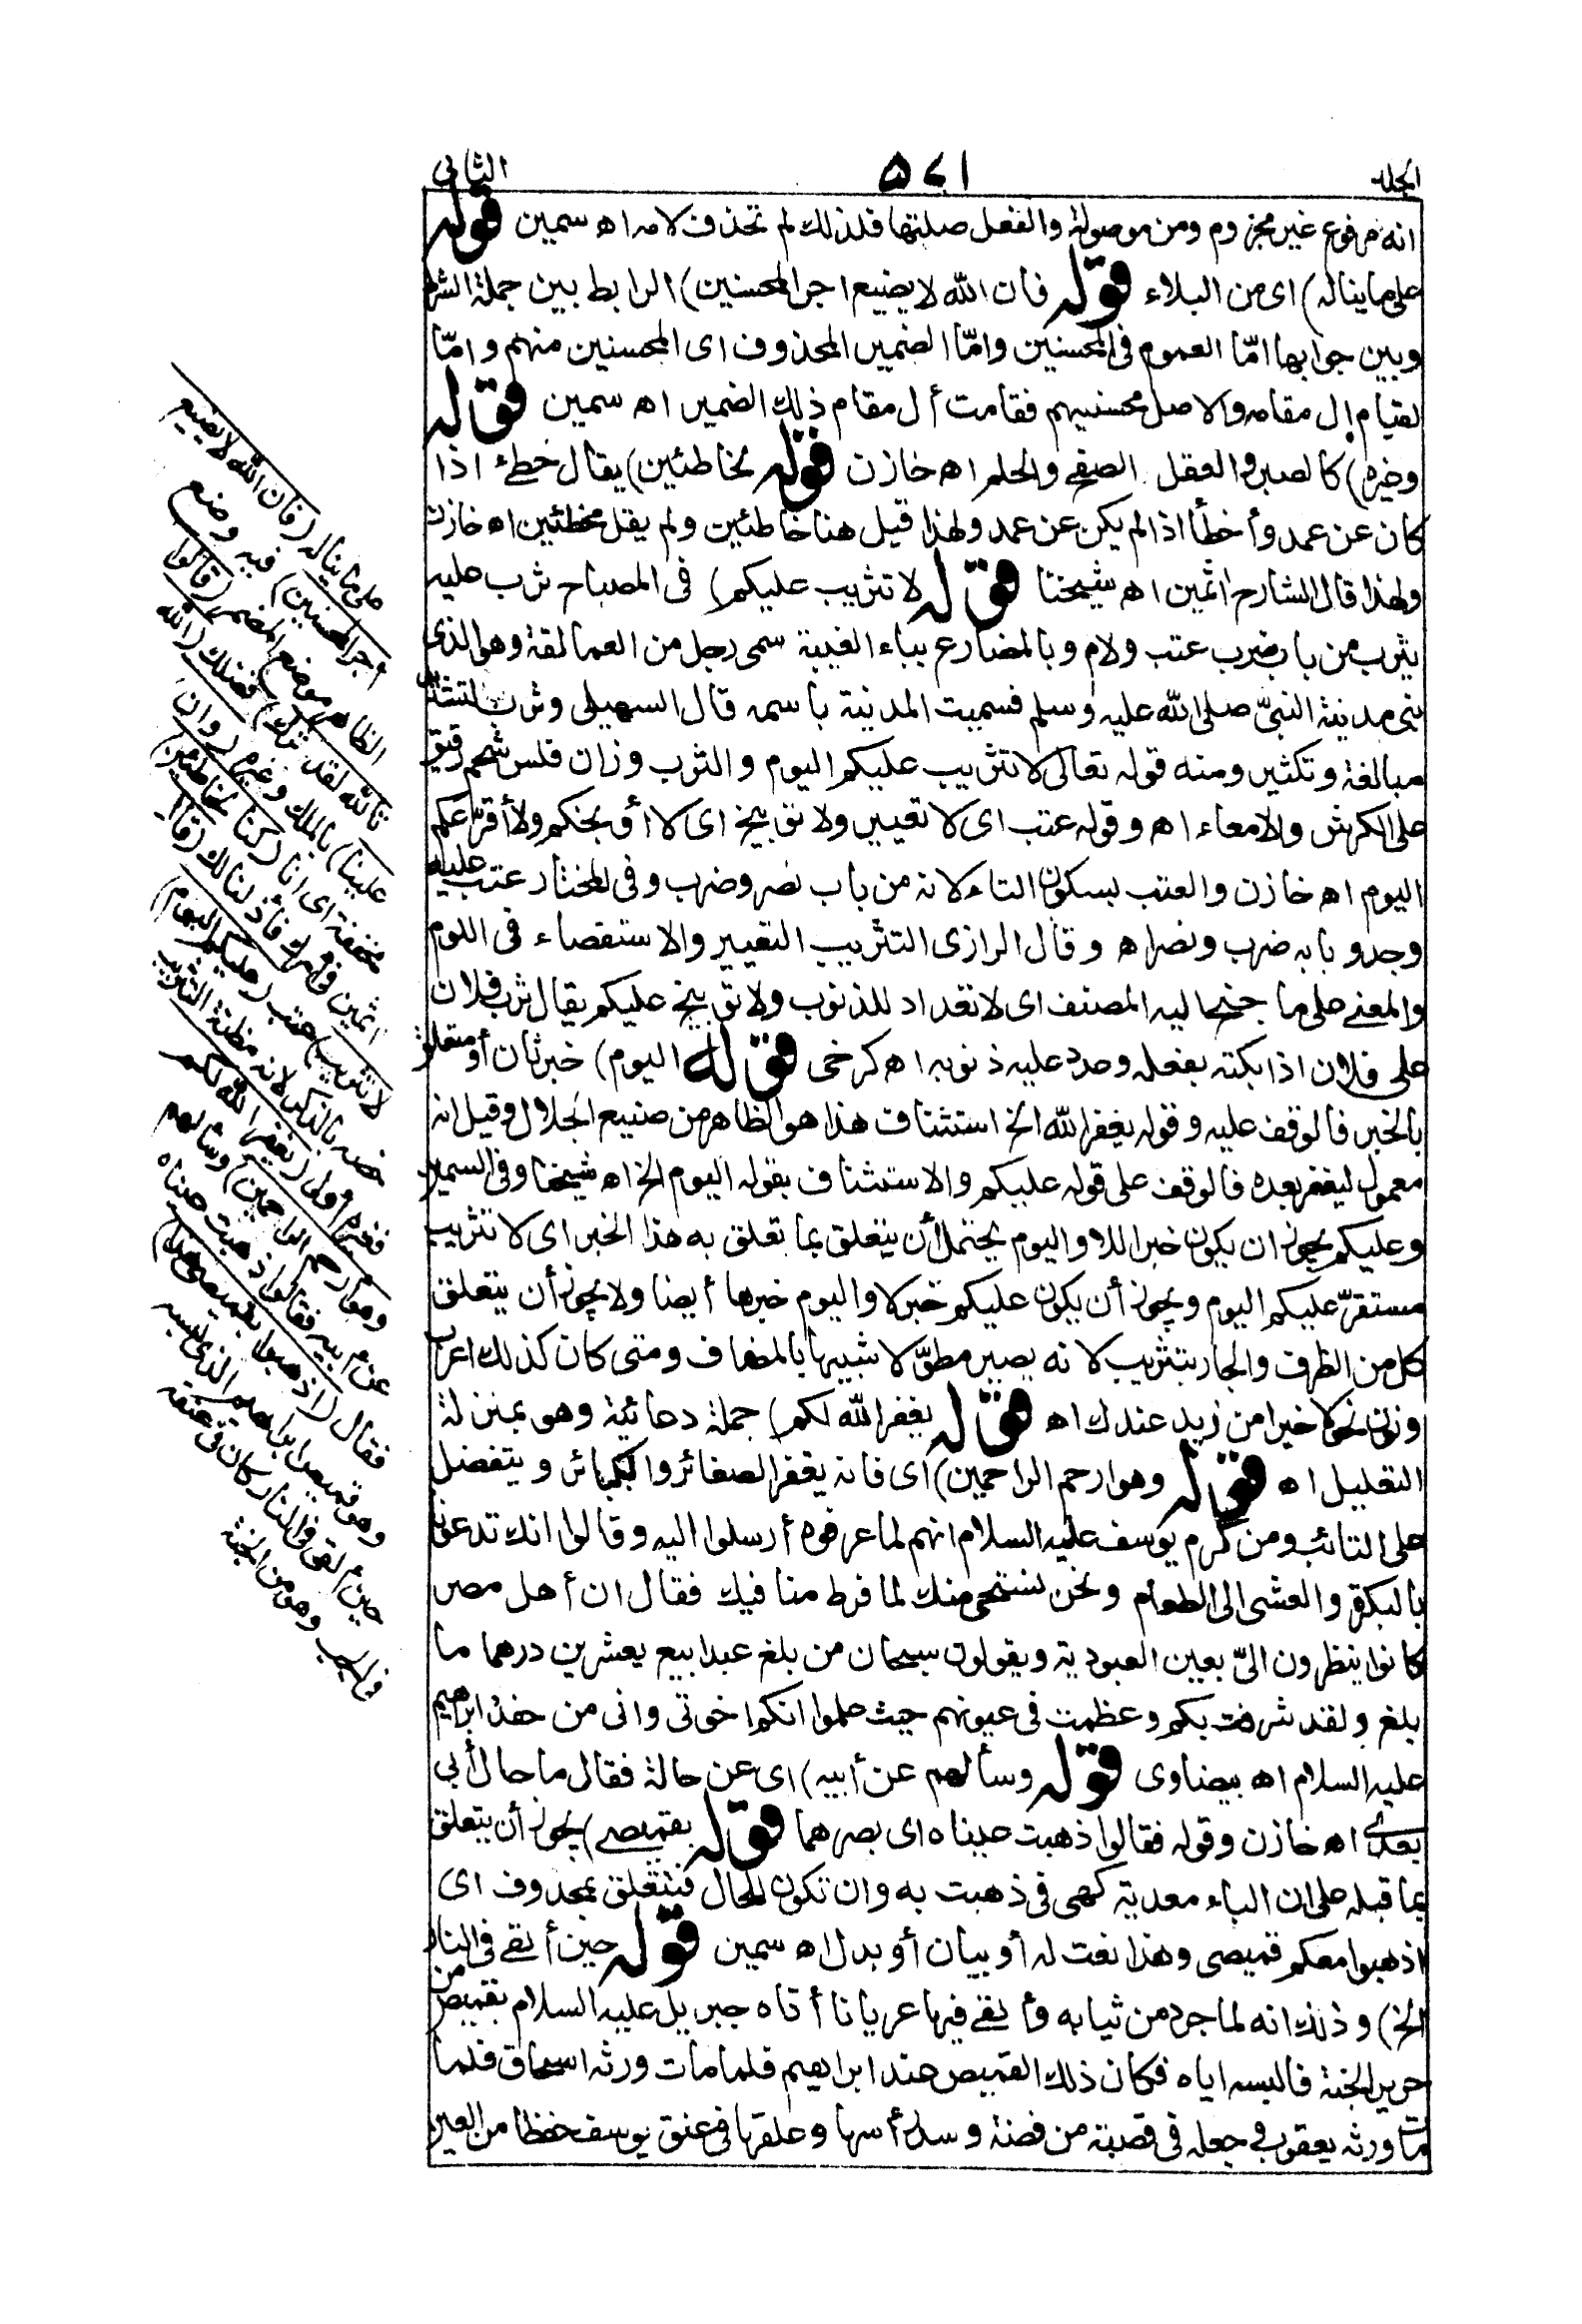 الجلد
٥٧١
الثانى
انه مرفوع غير مجزوم ومن موصولة والفعل صلتها فلذلك لم تحذف لامه اه سمين قوله
على ما يناله) اى من البلاء قوله فان الله لا يضيع اجر المحسنين) الرابط بين جملة الشرط
وبين جوابها امّا العموم فى المحسنين وامّا الضمير المحذوف اى المحسنين منهم وامّا
لقيام ال مقامه والاصل محسنيهم فقامت أل مقام ذلك الضمير اه سمين قوله
وغيره) كالصبر والعقل الصفح والحلم اه خازن قوله لخاطئين) يقال خطئ اذا
كان عن عمد وأخطأ اذا لم يكن عن عمد ولهذا قيل هنا خاطئين ولم يقل مخطئين اه خازن
ولهذا قال الشارح اثمين اه شيخنا قوله لا تثريب عليكم) فى المصباح ثرب عليه
يثرب من باب ضرب عتب ولام وبالمضارع بياء الغيبة سمى رجل من العمالقة وهو الذى
بنى مدينة النبىّ صلى الله عليه وسلم فسميت المدينة باسمه قال السهيلى وثرب بالتشديد
مبالغة وتكثير ومنه قوله تعالى لا تثريب عليكم اليوم والثرب وزان فلس شحم رقيق
على الكرش والامعاء اه وقوله عتب اى لا تعيير ولا توبيخ اى لا أوبخكم ولا أقرّعكم
اليوم اه خازن والعتب بسكون التاء لانه من باب نصر وضرب وفى المختار عتب عليه
وجد وبابه ضرب ونصر اه وقال الرازى التثريب التعيير والاستقصاء فى اللوم
والمعنى على ما جنح اليه المصنف اى لا تعداد للذنوب ولا توبيخ عليكم يقال ثرب فلان
على فلان اذا بكته بفعله وعدد عليه ذنوبه اه كرخى قوله اليوم) خبر ثان أو متعلق
بالخبر فالوقف عليه وقوله يغفر الله الخ استئناف هذا هو الظاهر من صنيع الجلال وقيل انه
معمول ليغفر بعده فالوقف على قوله عليكم والاستئناف بقوله اليوم الخ اه شيخنا وفى السمين
وعليكم يجوز ان يكون خبرا للا واليوم يحتمل أن يتعلق بما تعلق به هذا الخبر اى لا تثريب
مستقرّ عليكم اليوم ويجوز أن يكون عليكم خبر لا واليوم خبرها أيضا ولا يجوز أن يتعلق
كل من الظرف والجار بتثريب لانه يصير مطوّلا شبيها بالمضاف ومتى كان كذلك اعرب
ونوّن نحو لا خيرا من زيد عندك اه قوله يغفر الله لكم) جملة دعائية وهو بمنزلة
التعليل اه قوله وهو ارحم الراحمين) اى فانه يغفر الصغائر والكبائر ويتفضل
على التائب ومن كرم يوسف عليه السلام انهم لما عرفوه أرسلوا اليه وقالوا انك تدعونا
بالبكرة والعشى الى الطعام ونحن نستحى منك لما فرط منا فيك فقال ان أهل مصر
كانوا ينظرون الىّ بعين العبودية ويقولون سبحان من بلغ عبدا بيع بعشرين درهما ما
بلغ ولقد شرفت بكم وعظمت فى عيونهم حيث علموا انكم اخوتى وانى من حفدة ابراهيم
عليه السلام اه بيضاوى قوله وسألهم عن أبيه) اى عن حالة فقال ما حال أبى
بعدى اه خازن وقوله فقالوا ذهبت عيناه اى بصرهما قوله بقميصى) يجوز أن يتعلق
بما قبله على ان الباء معدية كهى فى ذهبت به وان تكون للحال فتتعلق بمحذوف اى
اذهبوا معكم قميصى وهذا نعت له أو بيان أو بدل اه سمين قوله حين ألقى فى النار
الخ) وذلك انه لما جرد من ثيابه وألقى فيها عريانا أتاه جبريل عليه السلام بقميص من
حرير الجنة فالبسه اياه فكان ذلك القميص عند ابراهيم فلما مات ورثه اسحاق فلما
مات ورثه يعقوب فجعله فى قصبة من فضة وسد رأسها وعلقها فى عنق يوسف حفظا من العين
على ما يناله (فان الله لا يضيع
اجر المحسنين) فيه وضع
الظاهر موضع المضمر (قالوا
تالله لقد آثرك) فضلك (الله
علينا) بالملك وغيره (وان
مخففة اى انا (كنا لخاطئين)
اثمين فى امرك فأذلنا لك (قال
لا تثريب) عتب (عليكم اليوم)
خصه بالذكر لانه مظنة التثريب
فغيره اولى (يغفر الله لكم
وهو ارحم الراحمين) وسألهم
عن ابيه فقالوا ذهبت عيناه
فقال (اذهبوا بقميصى هذا)
وهو قميص ابراهيم الذى لبسه
حين القى فى النار كان فى عنقه
فى الجب وهو من الجنة